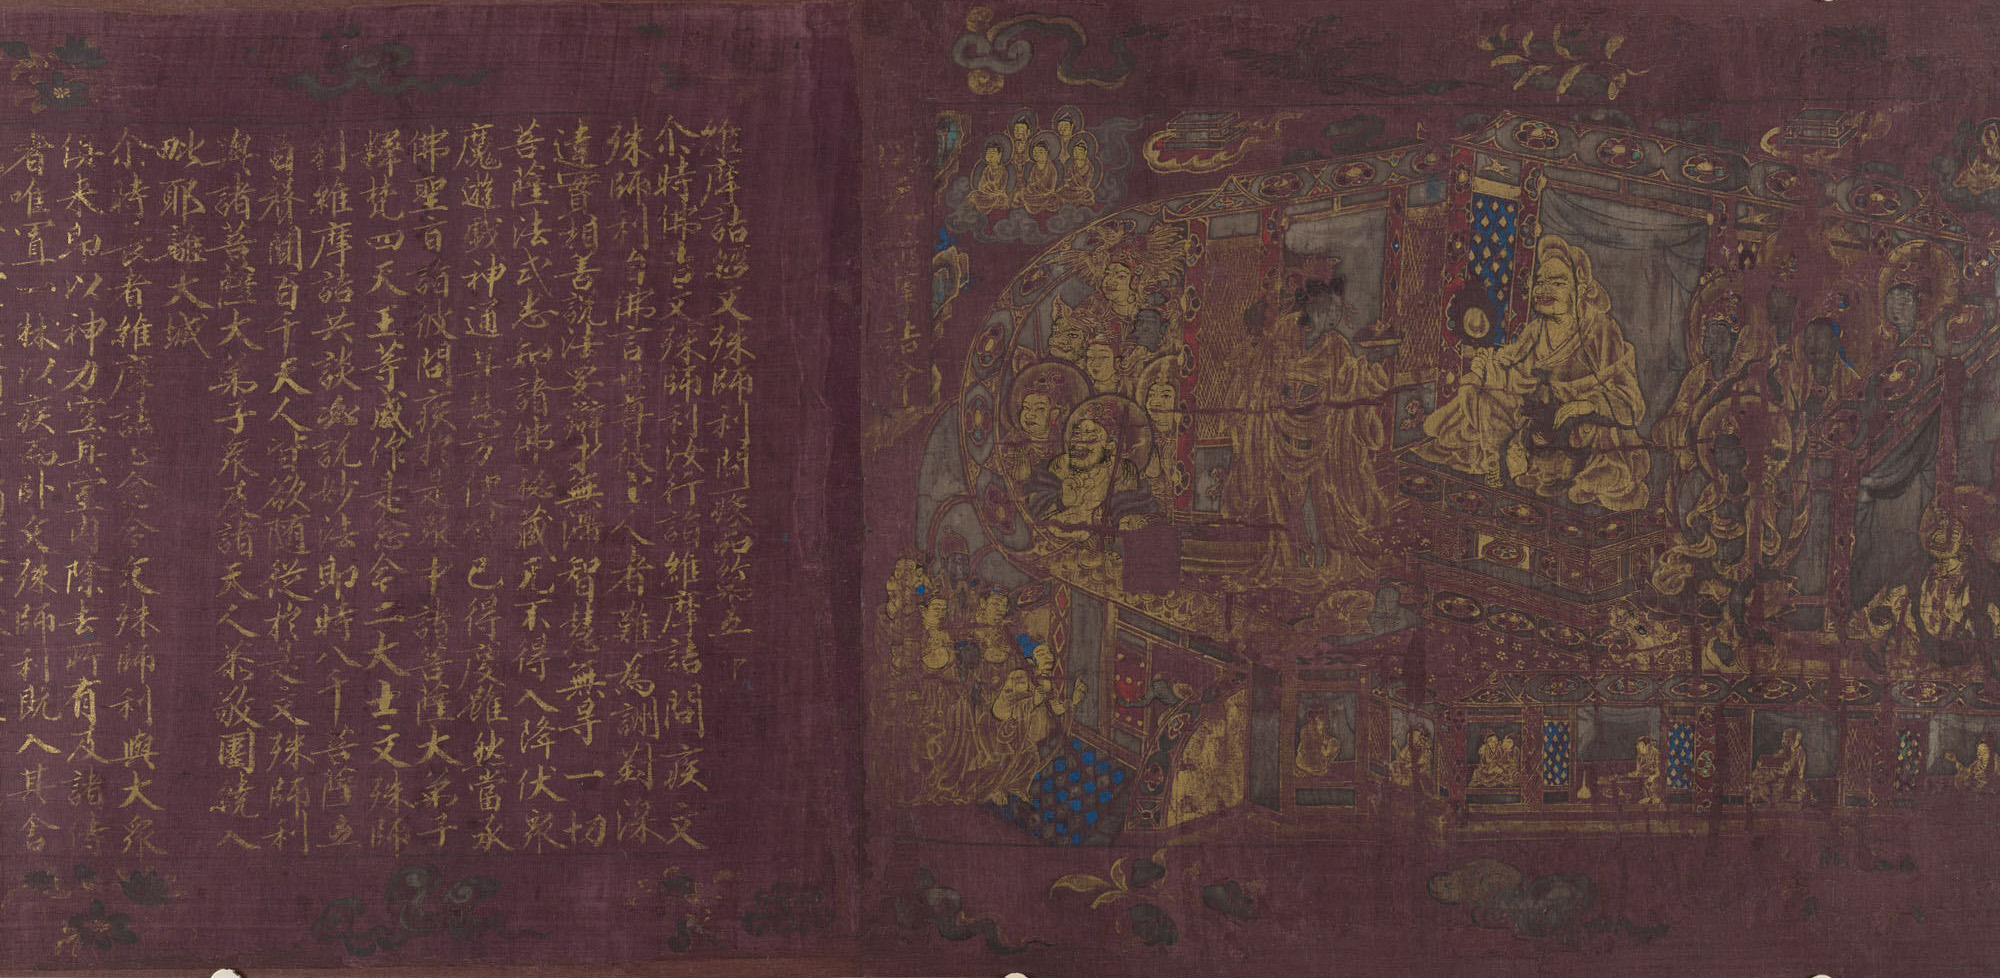 維摩詰經文殊師利問疾品第五
尒時佛告文殊師利汝行詣維摩詰問疾文
殊師利白佛言世尊彼上人者難為詶對深
達實相善說法要辯才無滯智慧無导一切
菩薩法式悉知諸佛秘藏无不得入降伏衆
魔遊戲神通其慧方便皆已得度雖然當承
佛聖旨詣彼問疾於是衆中諸菩薩大弟子
釋梵四天王等咸作是念今二大士文殊師
利維摩詰共談必說妙法即時八千菩薩五
百聲聞百千天人皆欲随從於是文殊師利
與諸菩薩大弟子衆及諸天人恭敬圍繞入
毗耶離大城
尒時長者維摩詰心念今文殊師利與大衆
俱來即以神力空其室內除去所有及諸侍
者唯置一牀以疾而卧文殊師利既入其舍